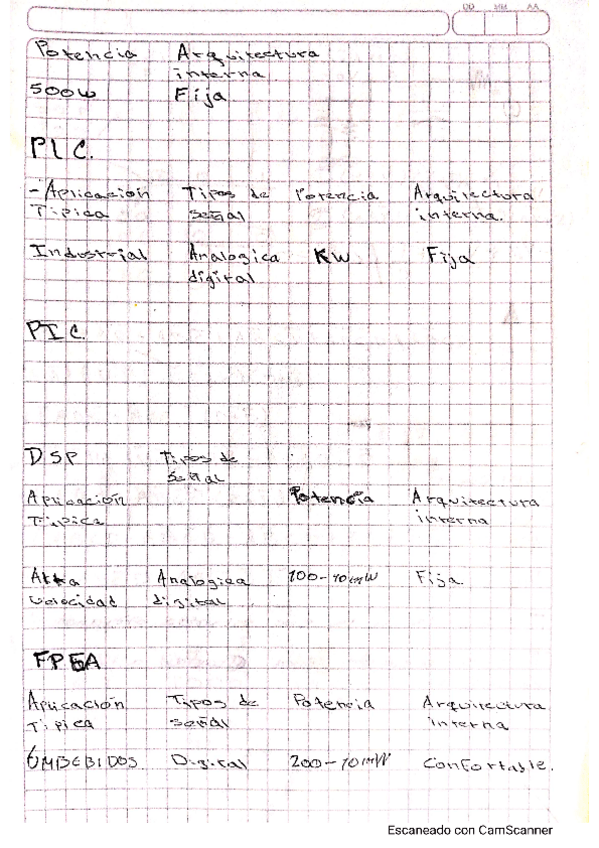 DD MM AA
Potencia Arquitectura
interna
500w Fija
PLC.
- Aplicacion Tipos de Potencia Arquitectura
Tipica señal interna.
Industrial Analogica KW Fija
digital
PIC
DSP Tipos de
señal
Aplicación Potencia Arquitectura
Tipica interna
Alta Analogica 100-10mW Fija.
velocidad digital
FPGA
Aplicación Tipos de Potencia Arquitectura
Tipica señal interna
EMBEBIDOS Digital 200-10mW Confortable.
Escaneado con CamScanner